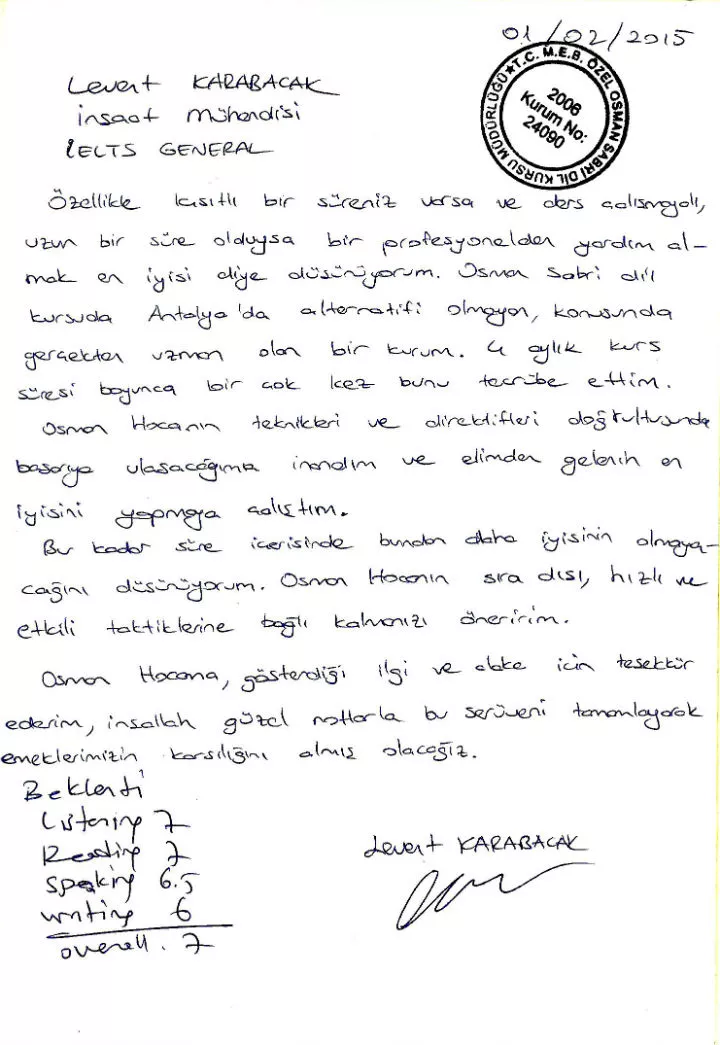 01/02/2015
T.C. M.E.B. ÖZEL OSMAN SABRİ DİL KURSU MÜDÜRLÜĞÜ★
2006
Kurum No:
24090
Levent KARABACAK
inşaat mühendisi
IELTS GENERAL
Özellikle kısıtlı bir süreniz varsa ve ders çalışmayalı,
uzun bir süre olduysa bir profesyonelden yardım al-
mak en iyisi diye düşünüyorum. Osman Sabri dil
kursuda Antalya'da alternatifi olmayan, konusunda
gerçekten uzman olan bir kurum. 4 aylık kurs
süresi boyunca bir çok kez bunu tecrübe ettim.
Osman Hocanın teknikleri ve direktifleri doğrultusunda
başarıya ulaşacağıma inandım ve elimden gelenin en
iyisini yapmaya çalıştım.
Bu kadar süre içerisinde bundan daha iyisinin olmaya-
cağını düşünüyorum. Osman Hocanın sıra dışı, hızlı ve
etkili taktiklerine bağlı kalmanızı öneririm.
Osman Hocama, gösterdiği ilgi ve alaka için teşekkür
ederim, inşallah güzel notlarla bu serüveni tamamlayarak
emeklerimizin karşılığını almış olacağız.
Beklenti
Listening 7
Reading 7
Speaking 6.5
writing 6
overall. 7
Levent KARABACAK